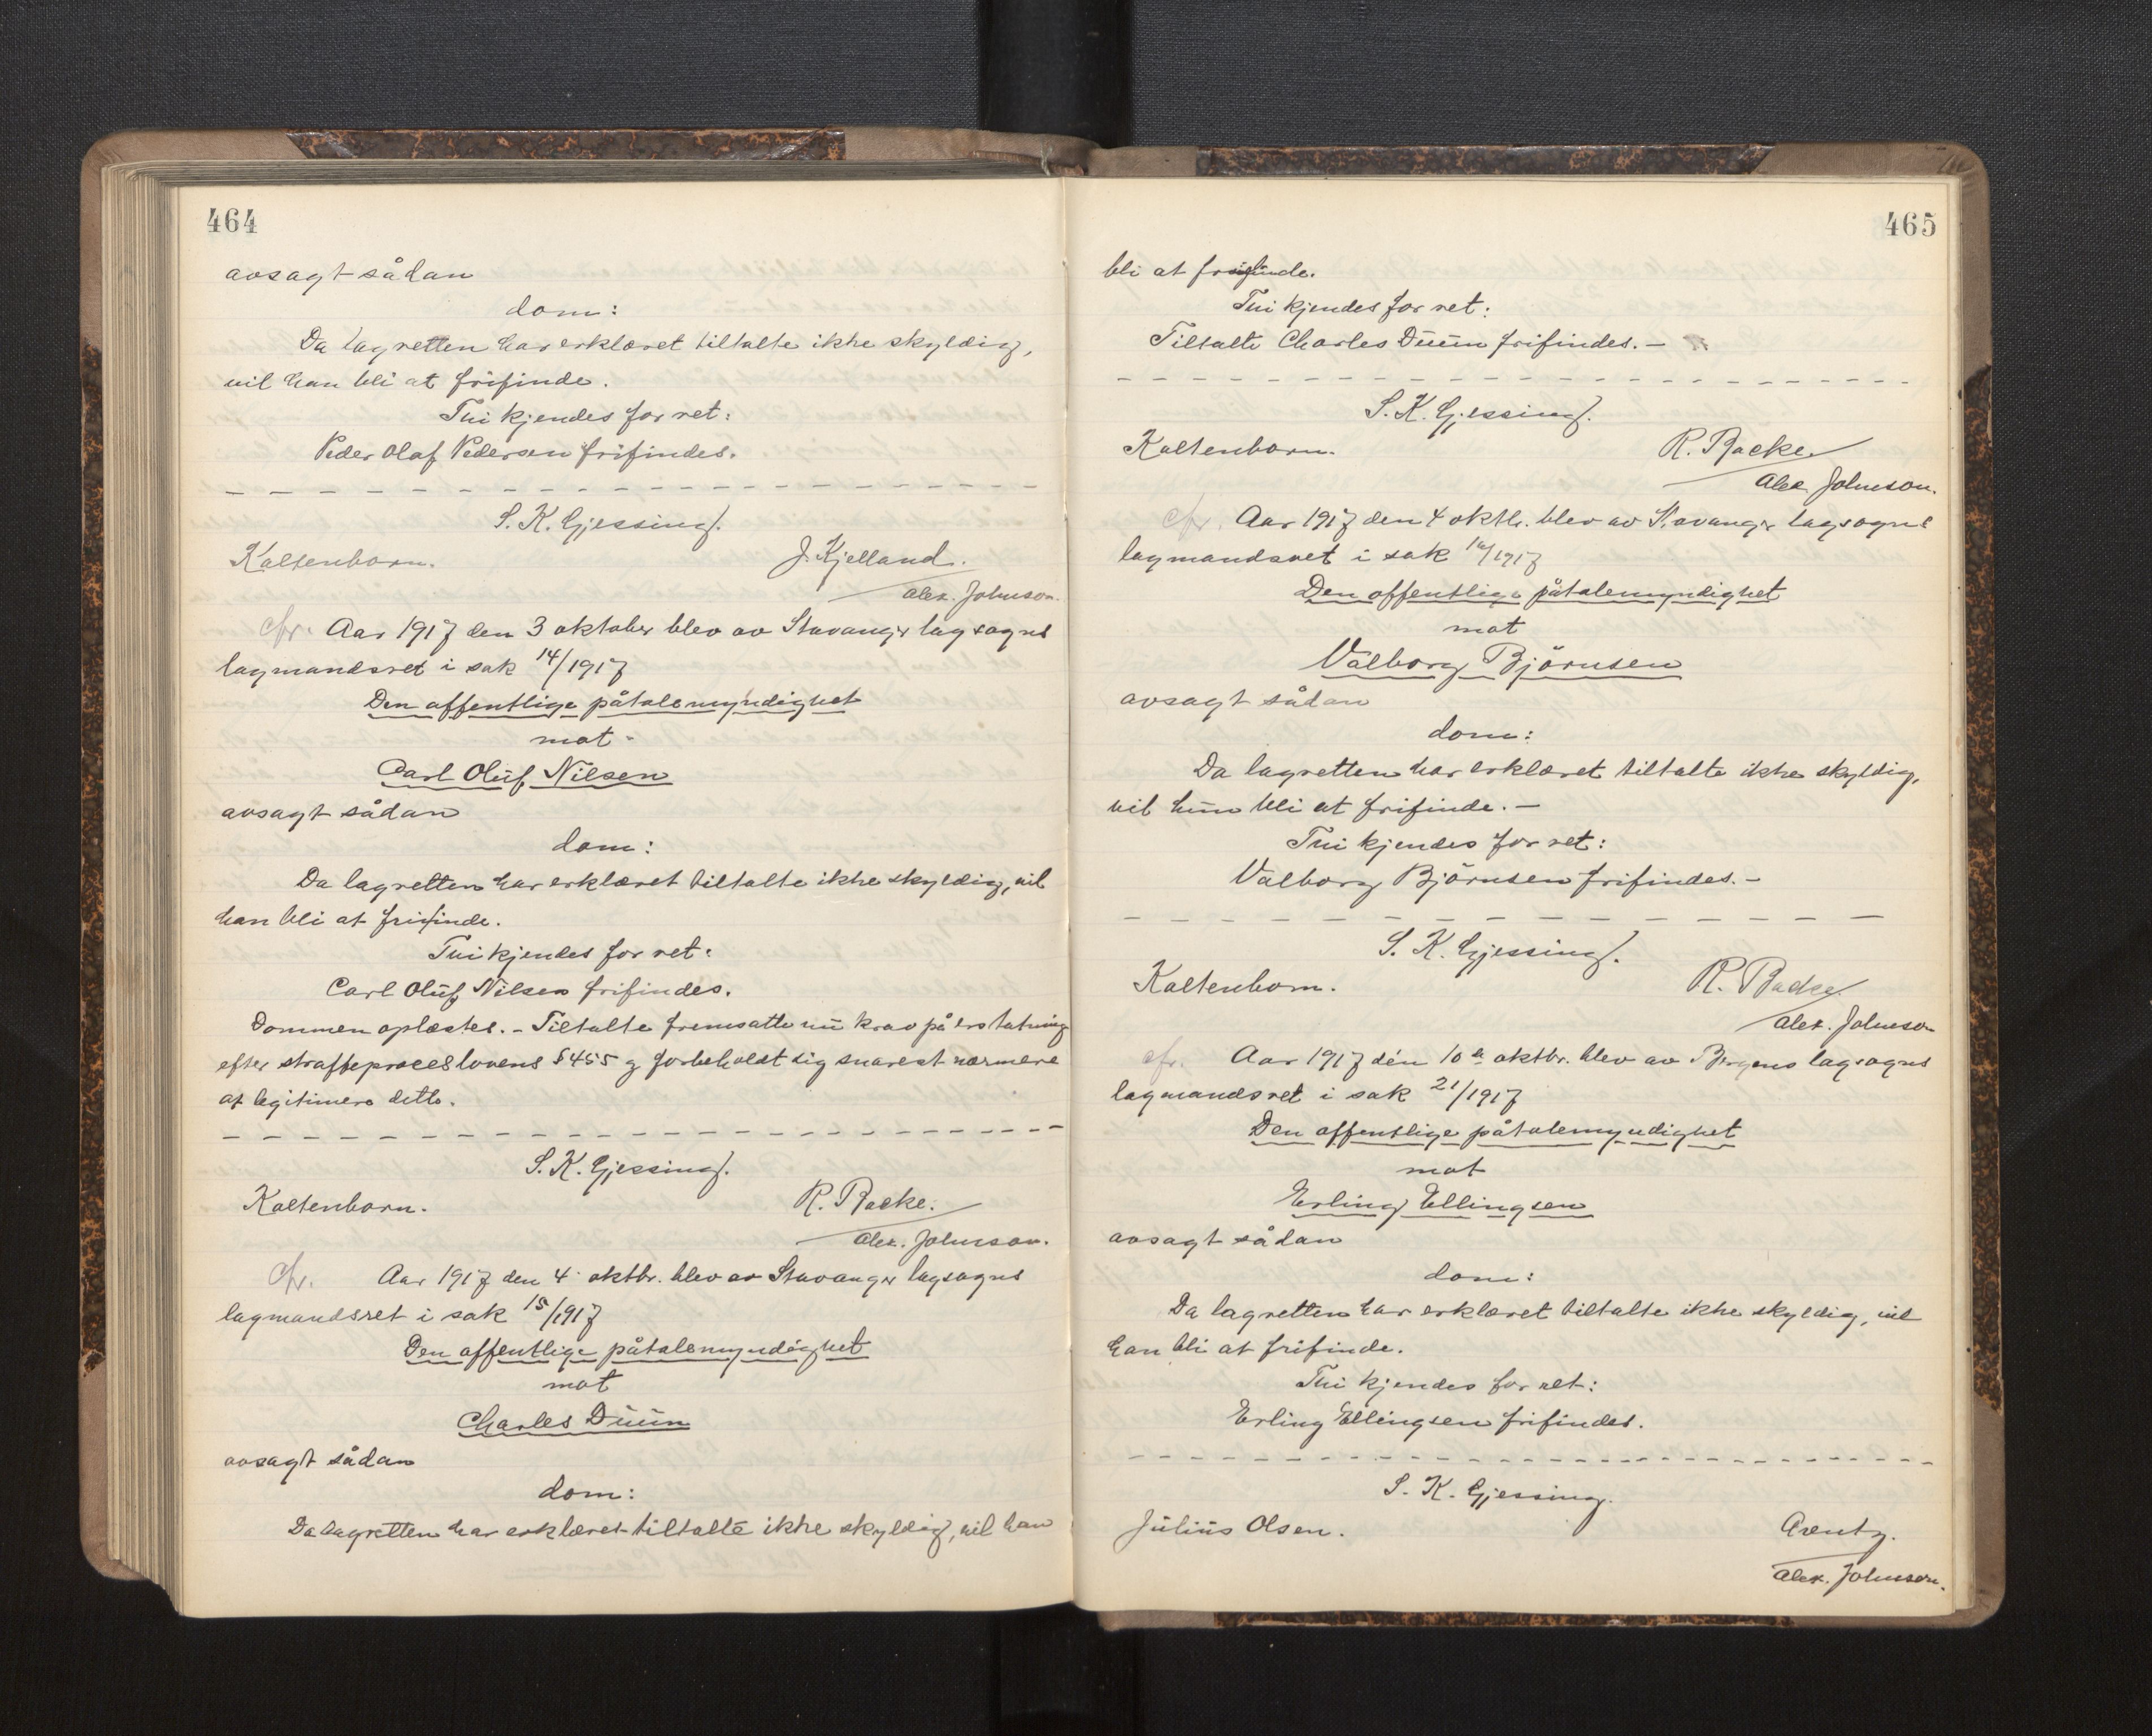 464
avsagt sådan
dom:
Da lagretten har erklæret tiltalte ikke skyldig,
vil han bli at frifinde.
Thi kjendes for ret:
Peder Olaf Pedersen frifindes.
S. K. Gjessing.
Kaltenborn.
J. Kjelland.
Alex. Johnson.
cfr. Aar 1917 den 3 oktober blev av Stavanger lagsogns
lagmandsret i sak 14/1917
Den offentlige påtalemyndighet
mot
Carl Oluf Nilsen
avsagt sådan
dom:
Da lagretten har erklæret tiltalte ikke skyldig, vil
han bli at frifinde.
Thi kjendes for ret:
Carl Oluf Nilsen frifindes.
Dommen oplæstes. - Tiltalte fremsatte nu krav på erstatning
efter straffeproceslovens § 455 og forbeholdt sig snarest nærmere
at legitimere dette.
S. K. Gjessing.
Kaltenborn.
R. Racke.
Alex. Johnson.
Cfr. Aar 1917 den 4 oktbr. blev av Stavanger lagsogns
lagmandsret i sak 15/1917
Den offentlige påtalemyndighet
mot
Charles Duun
avsagt sådan
dom:
Da lagretten har erklæret tiltalte ikke skyldig, vil han
465
bli at frifinde.
Thi kjendes for ret:
Tiltalte Charles Duun frifindes. -
S. K. Gjessing.
Kaltenborn.
R. Racke
Alex. Johnson.
cfr. Aar 1917 den 4 oktb. blev av Stavanger lagsogns
lagmandsret i sak 16/1917
Den offentlige påtalemyndighet
mot
Valborg Björnsen
avsagt sådan
dom:
Da lagretten har erklæret tiltalte ikke skyldig,
vil hun bli at frifinde. -
Thi kjendes for ret:
Valborg Björnsen frifindes. -
S. K. Gjessing.
Kaltenborn.
R. Racke
Alex. Johnson
cfr. Aar 1917 den 10de oktbr. blev av Bergens lagsogns
lagmandsret i sak 21/1917
Den offentlige påtalemyndighet
mot
Erling Ellingsen
avsagt sådan
dom:
Da lagretten har erklæret tiltalte ikke skyldig, vil
han bli at frifinde.
Thi kjendes for ret:
Erling Ellingsen frifindes.
S. K. Gjessing.
Julius Olsen.
Arentz.
Alex. Johnson.